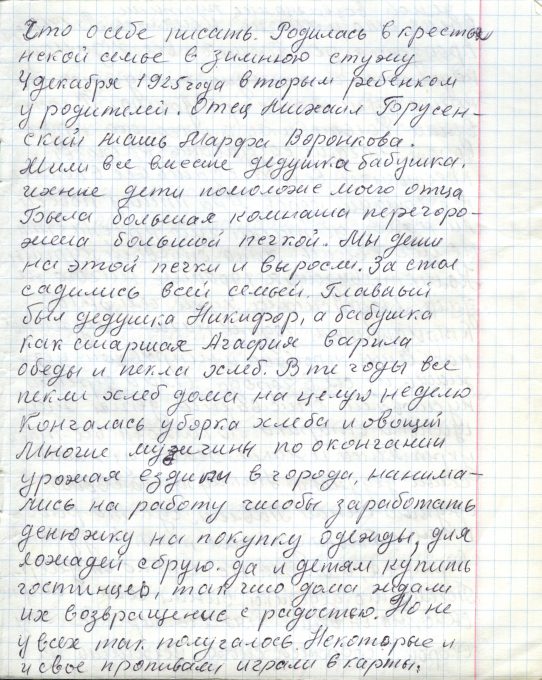 Что о себе писать. Родилась в крестья
нской семье в зимнюю стужу
4 декабря 1925 года вторым ребенком
у родителей. Отец Михаил Брусен-
ский мать Марфа Воронкова.
Жили все вместе дедушка бабушка.
ихние дети помоложе моего отца
Была большая комната перегоро-
жена большой печкой. Мы дети
на этой печки и выросли. За стол
садились всей семьей. Главный
был дедушка Никифор, а бабушка
как старшая Агафия варила
обеды и пекла хлеб. В те годы все
пекли хлеб дома на целую неделю
Кончалась уборка хлеба и овощей
Многие мужчины по окончании
урожая ездили в города, нанима-
лись на работу чтобы заработать
денюжку на покупку одежды, для
лошадей сбрую. да и детям купить
гостинцев, так что дома ждали
их возвращение с радостью. Но не
у всех так получалось. Некоторые и
и свое пропивали играли в карты.